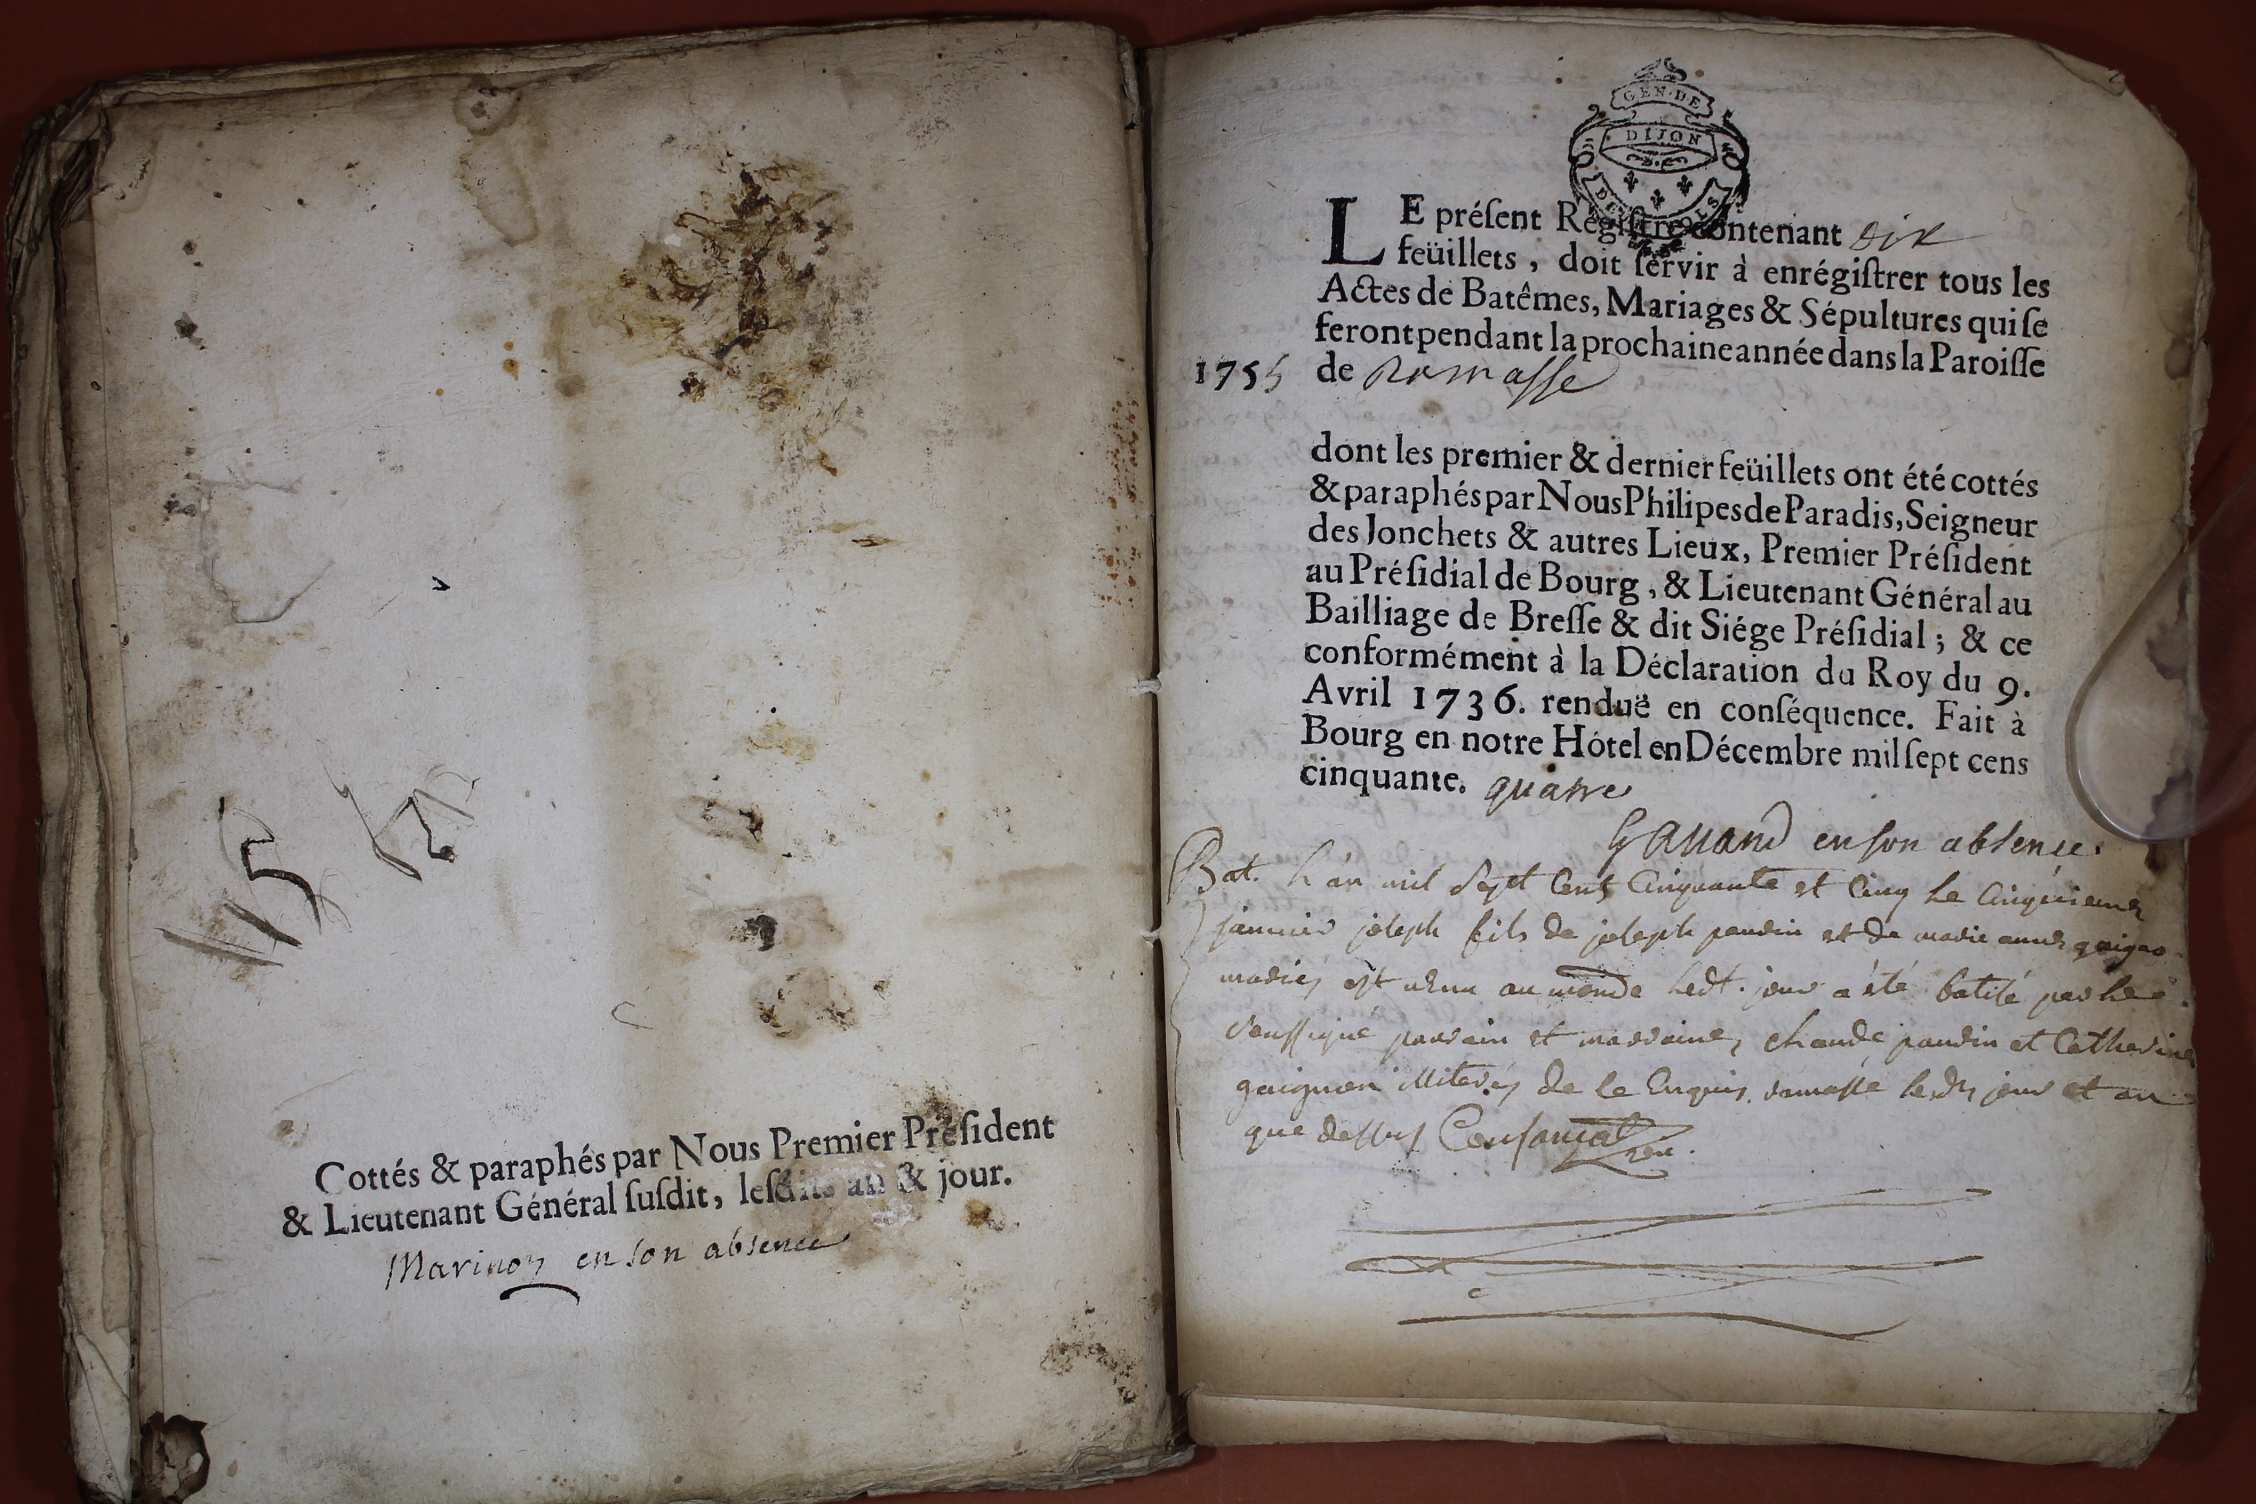 115
Cottés & paraphés par Nous Premier Préſident
& Lieutenant Général ſuſdit, leſdits an & jour.
Marinon en son absence
GEN·DE
DIJON
LE préſent Régiſtre contenant dix
feüillets, doit ſervir à enrégiſtrer tous les
Actes de Batêmes, Mariages & Sépultures qui ſe
feront pendant la prochaine année dans la Paroiſſe
1755 de Ramasse
dont les premier & dernier feüillets ont été cottés
& paraphés par Nous Philipes de Paradis, Seigneur
des Jonchets & autres Lieux, Premier Préſident
au Préſidial de Bourg, & Lieutenant Général au
Bailliage de Breſſe & dit Siége Préſidial; & ce
conformément à la Déclaration du Roy du 9.
Avril 1736. renduë en conſéquence. Fait à
Bourg en notre Hôtel en Décembre mil ſept cens
cinquante. quatre
en son absence.
Bat. L'an mil sept cent cinquante et cinq le cinquieme
janvier joseph fils de joseph et de marie anne
mariés est venu au monde led. jour a été batisé par le
soussigné parrain et marraine, claude et Catherine
illiterés de ce enquis ramasse lesd. jour et an
que dessus